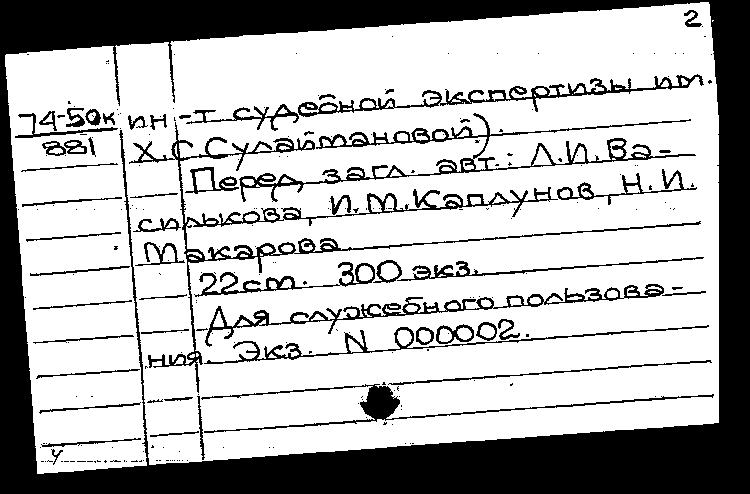 2
74-50к ин-т судебной экспертизы им.
881 Х.С.Сулаймановой).
Перед загл. авт.: Л.И.Ва-
силькова, И.М.Каплунов, Н.И.
Макарова.
22см. 300 экз.
Для служебного пользова-
ния. Экз. N 000002.